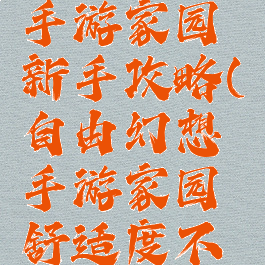 手游家园
新手攻略(
自由幻想
手游家园
舒适度不